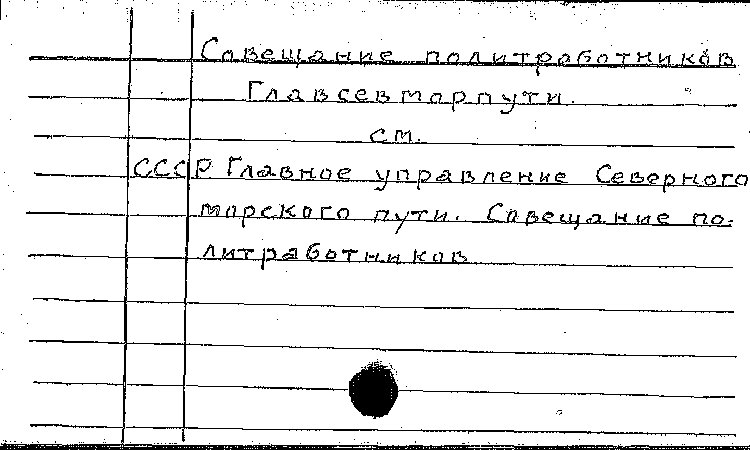 Совещание политработников
Главсевморпути.
см.
СССР Главное управление Северного
морского пути. Совещание по-
литработников